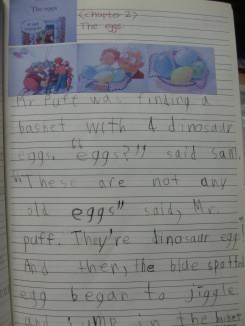 The eggs
(chapter 2)
The egs
Mr Puff was finding a
basket with 4 dinosaur
eggs. "eggs?!" said sam.
"These are not any
old eggs" said, Mr.
puff. They're dinosaur eggs!
And then, the blue spotted
egg began to jiggle
and jump in the